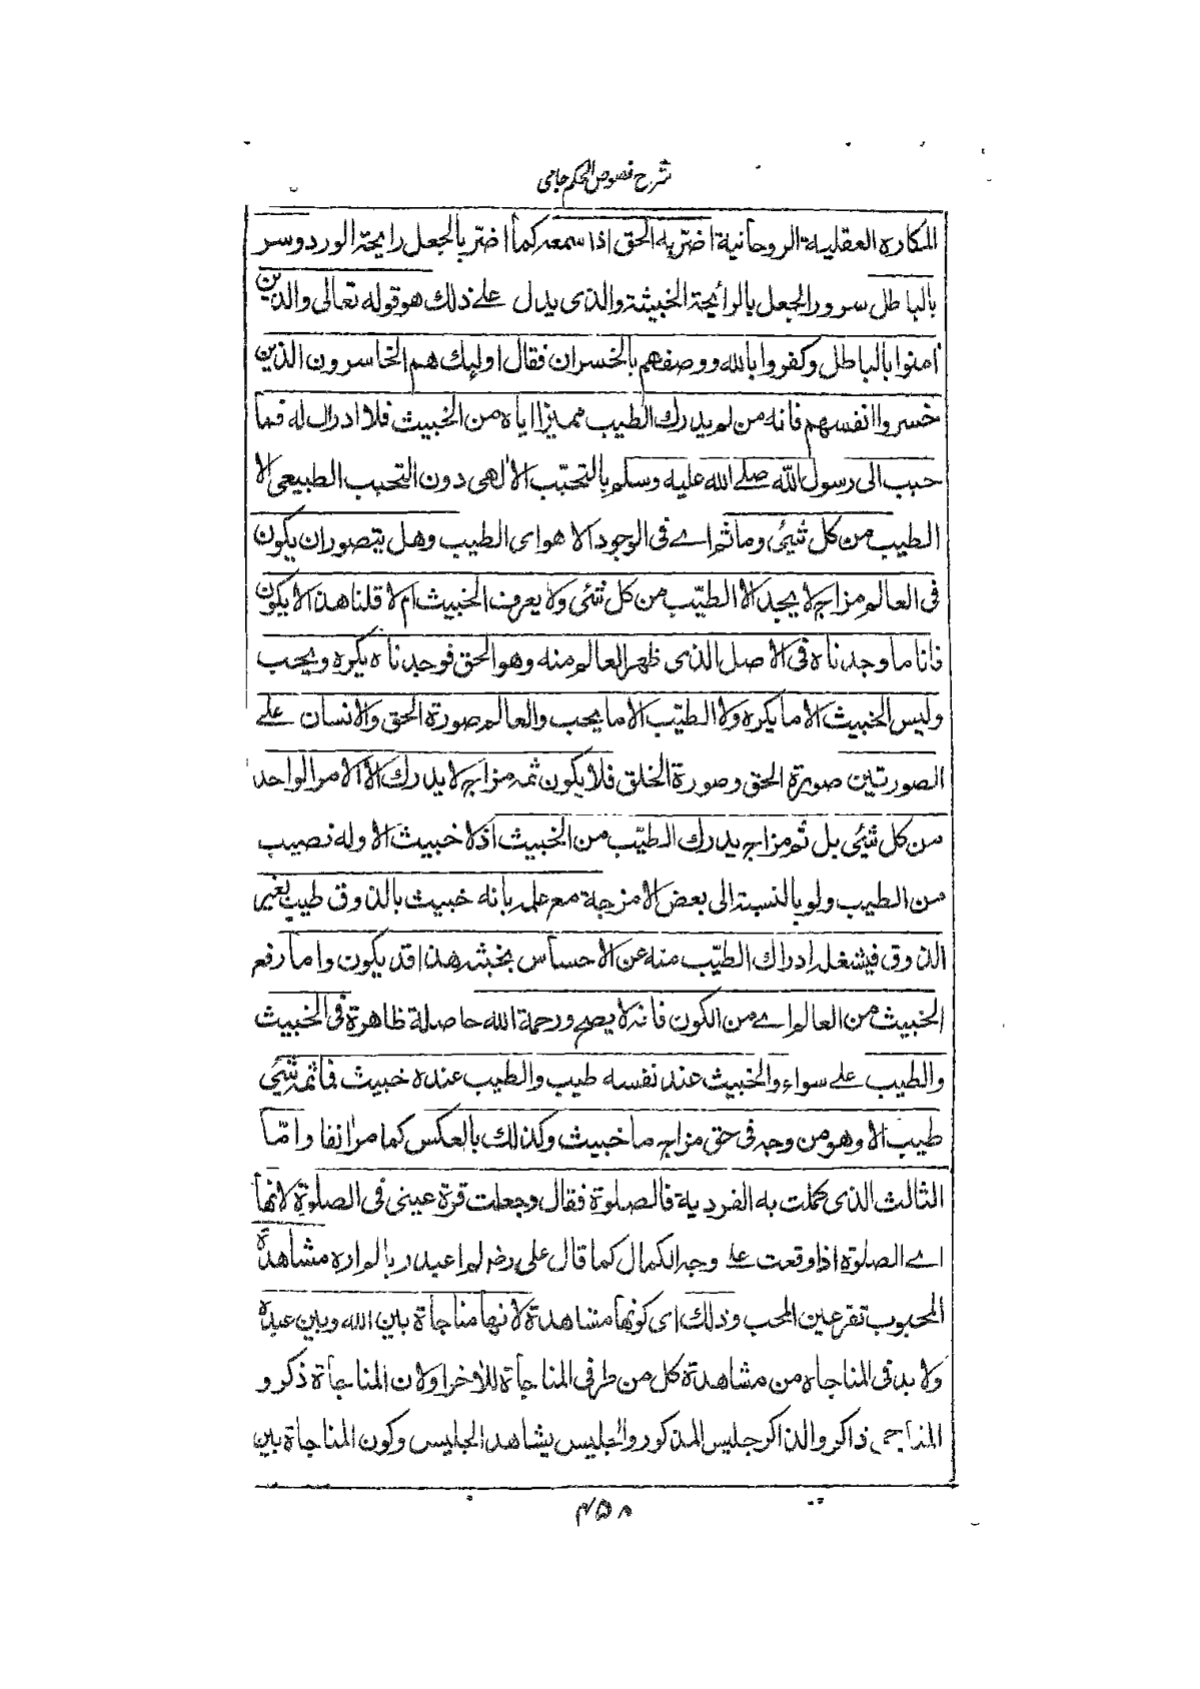 شرح فصوص الحكم جامى
المكاره العقلية الروحانية اضتر به الحق اذا سمعه كما اضتر بالجعل رايحة الورد وسر
بالباطل سرور الجعل بالرائحة الخبيثة والذى يدل علے ذلك هو قوله تعالى والذين
آمنوا بالباطل وكفروا بالله ووصفهم بالخسران فقال اوليك هم الخاسرون الذين
خسروا انفسهم فانه من لم يدرك الطيب مميزا اياه من الخبيث فلا ادراك له فما
حبب الى رسول الله صلے الله عليه وسلم بالتحبب الالهى دون التحبب الطبيعى الا
الطيب من كل شيئ وما ثم اے فى الوجود الا هو اى الطيب وهل يتصور ان يكون
فى العالم مزاج لا يجد الا الطيّب من كل شئى ولا يعرف الخبيث ام لا قلنا هذا لا يكون
فانا ما وجدناه فى الاصل الذى ظهر العالم منه وهو الحق فوجدناه يكره ويحب
وليس الخبيث الا ما يكره ولا الطيّب الا ما يحب والعالم صورة الحق والانسان علے
الصورتين صورة الحق وصورة الخلق فلا يكون ثمه مزاج لا يدرك الا الامر الواحد
من كل شيئى بل ثم مزاج يدرك الطيّب من الخبيث اذ لا خبيث الا وله نصيب
من الطيب ولو بالنسبة الى بعض الامزجة مع علمه بانه خبيث بالذوق طيب بغير
الذوق فيشغله ادراك الطيّب منه عن الاحساس بخبثه هذا قد يكون واما رفع
الخبيث من العالم اے من الكون فانه لا يصح ورحمة الله حاصلة ظاهرة فى الخبيث
والطيب علے سواء والخبيث عند نفسه طيب والطيب عنده خبيث فما ثمه شيئى
طيب الا وهو من وجه فى حق مزاج ما خبيث وكذلك بالعكس كما مر انفا وامّا
الثالث الذى كملت به الفردية فالصلوة فقال وجعلت قرة عينى فى الصلوة لانها
اے الصلوة اذا وقعت علے وجه الكمال كما قال على رضه لم اعبد ربا لم اره مشاهدة
المحبوب تقر عين المحب وذلك اى كونها مشاهدة لانها مناجاة بين الله وبين عبده
ولا بد فى المناجاه من مشاهدة كل من طرفى المناجاة للآخر اولان المناجاة ذكر و
المناجى ذاكر والذاكر جليس المذكور والجليس يشاهد الجليس وكون المناجاة بين
۴۵۸